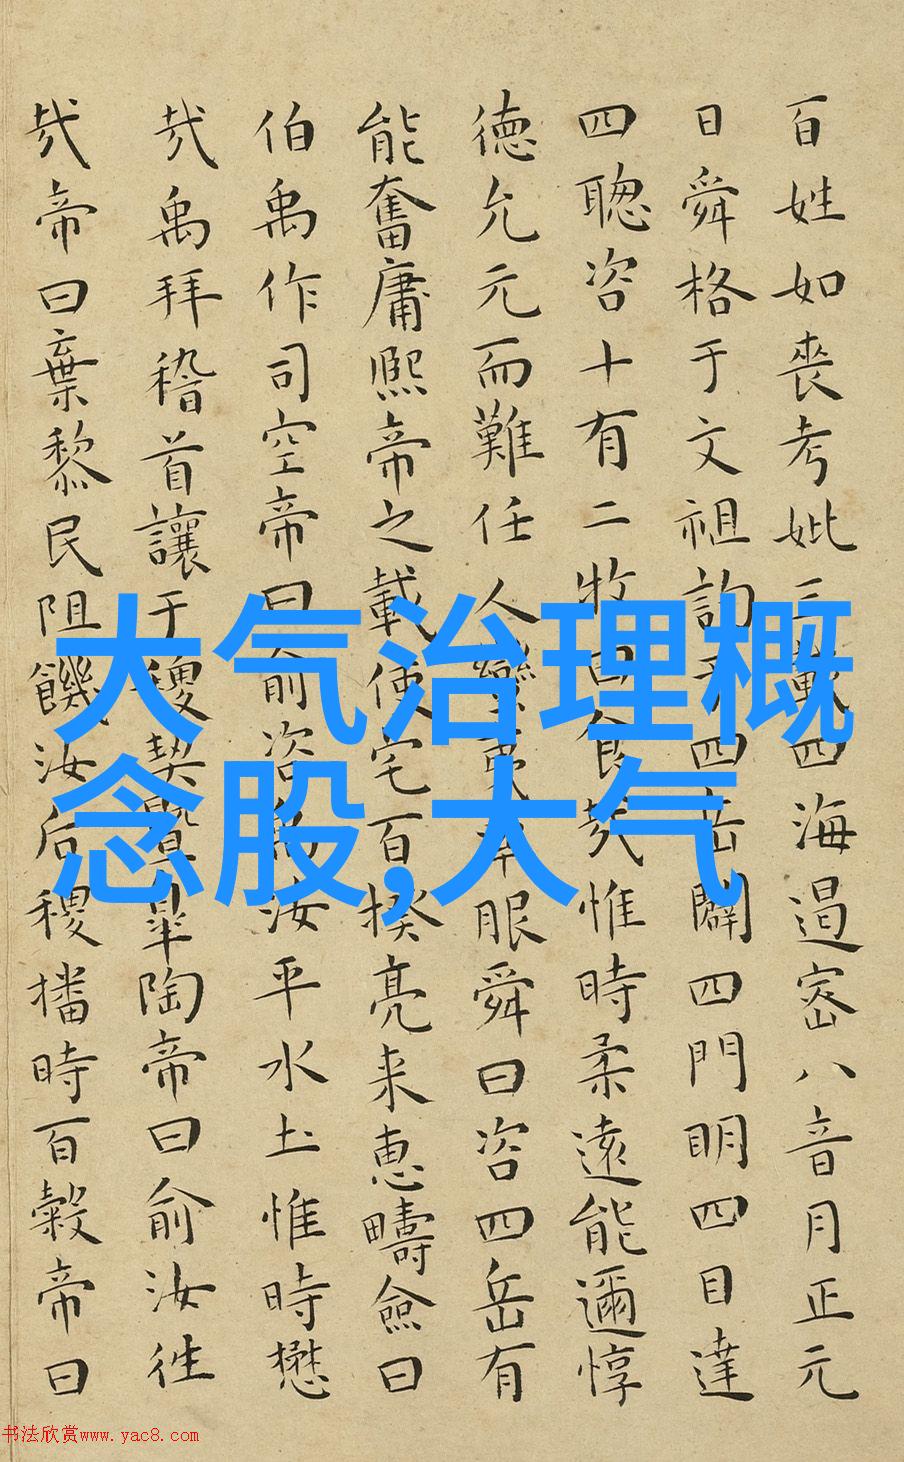 百姓如喪考妣三載四海遏密八音月正元
日舜格于文祖詢于四岳闢四門明四目達
四聰咨十有二牧曰食哉惟時柔遠能邇惇
德允元而難任人蠻夷率服舜曰咨四岳有
能奮庸熙帝之載使宅百揆亮采惠疇僉曰
伯禹作司空帝曰俞咨禹汝平水土惟時懋
哉禹拜稽首讓于稷契暨皋陶帝曰俞汝往
哉帝曰棄黎民阻饑汝后稷播時百穀帝曰
大气治理概
念股,大气
书法欣赏www.yac8.com